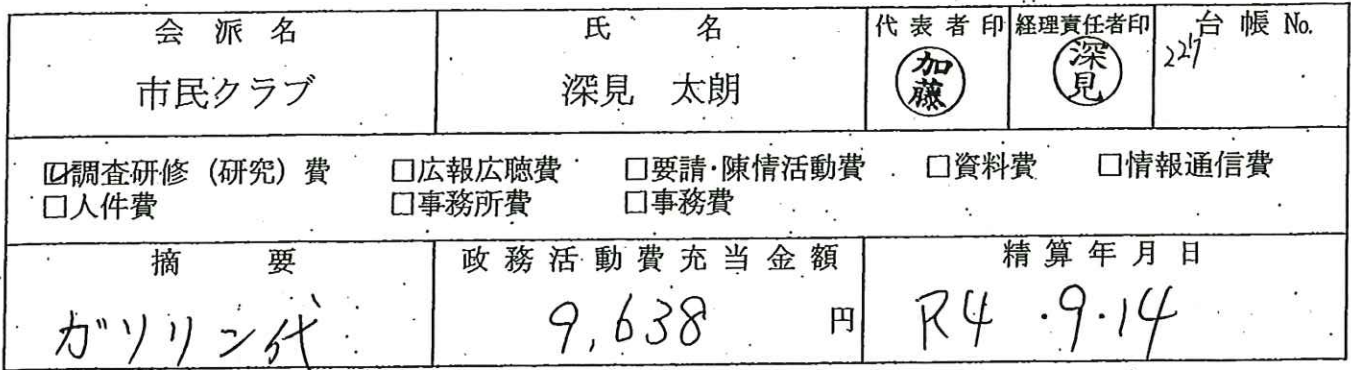 会派名 氏名 代表者印 経理責任者印 台帳No.
市民クラブ 深見 太朗 加藤 深見 227
☑調査研修(研究)費 □広報広聴費 □要請・陳情活動費 □資料費 □情報通信費
□人件費 □事務所費 □事務費
摘要 政務活動費充当金額 精算年月日
ガソリン代 9,638 円 R4・9・14